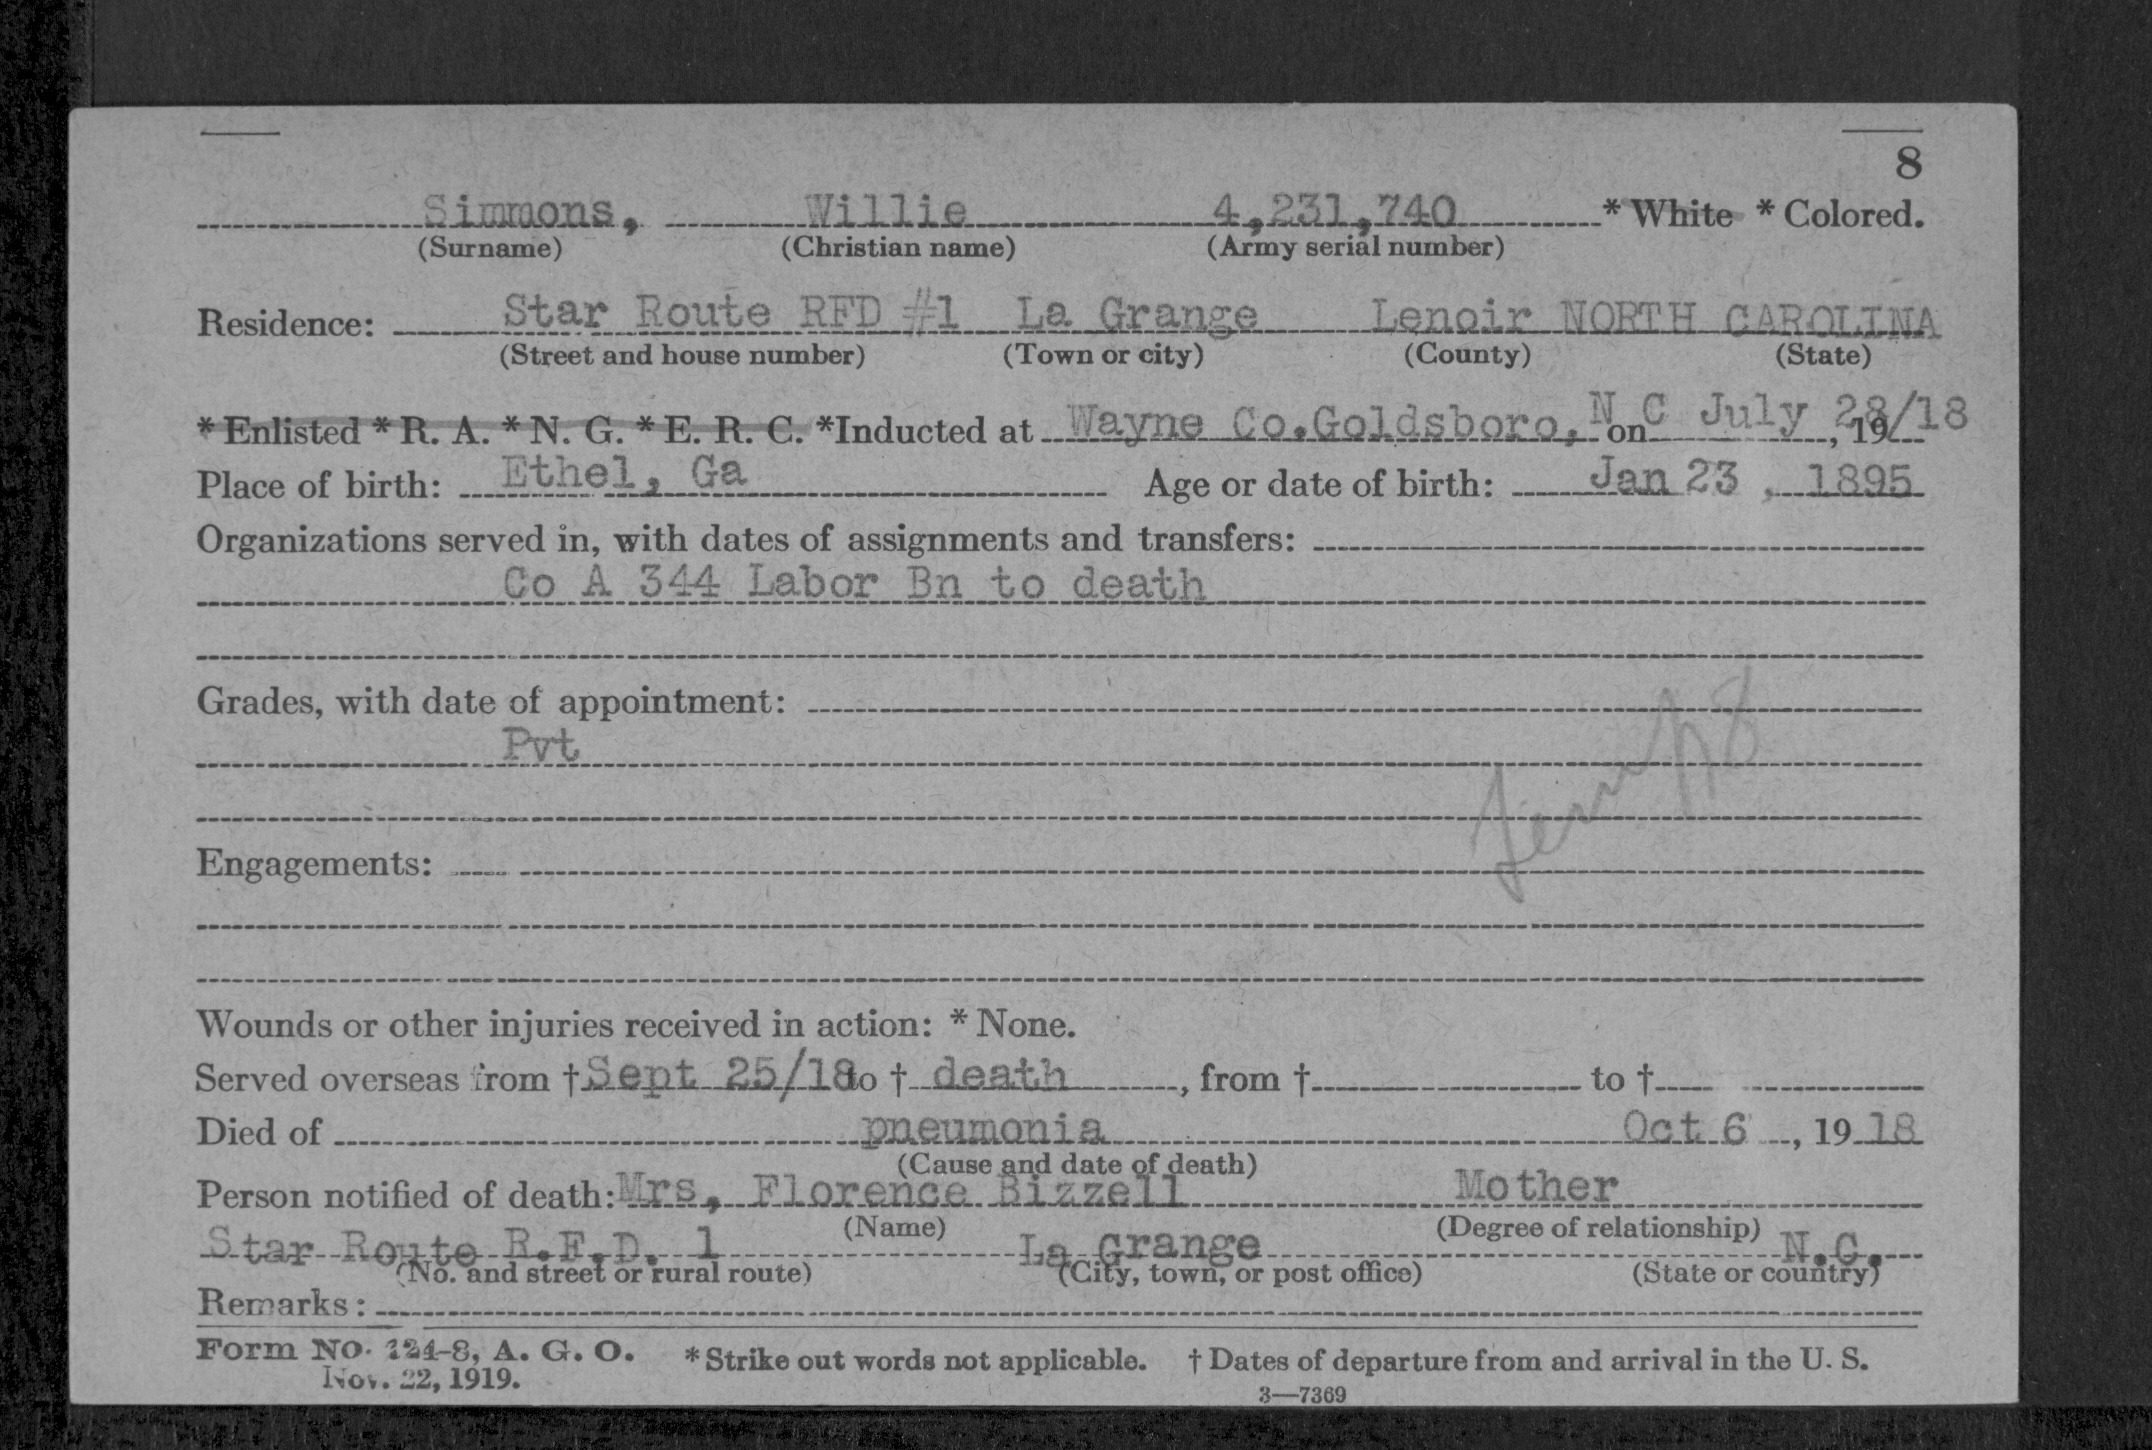 8
Simmons, Willie 4,231,740 * White * Colored.
(Surname) (Christian name) (Army serial number)
Residence: Star Route RFD #1 La Grange Lenoir NORTH CAROLINA
(Street and house number) (Town or city) (County) (State)
* Enlisted * R. A. * N. G. * E. R. C. *Inducted at Wayne Co.Goldsboro, N C on July 28/18, 19
Place of birth: Ethel, Ga Age or date of birth: Jan 23, 1895
Organizations served in, with dates of assignments and transfers:
Co A 344 Labor Bn to death
Grades, with date of appointment:
Pvt
Engagements:
Wounds or other injuries received in action: * None.
Served overseas from † Sept 25/18 to † death, from † to †
Died of pneumonia Oct 6, 1918
(Cause and date of death)
Person notified of death: Mrs, Florence Bizzell Mother
(Name) (Degree of relationship)
Star Route R.F.D. 1 La Grange N.C.
(No. and street or rural route) (City, town, or post office) (State or country)
Remarks:
Form No. 724-8, A. G. O. * Strike out words not applicable. † Dates of departure from and arrival in the U. S.
Nov. 22, 1919.
3—7369